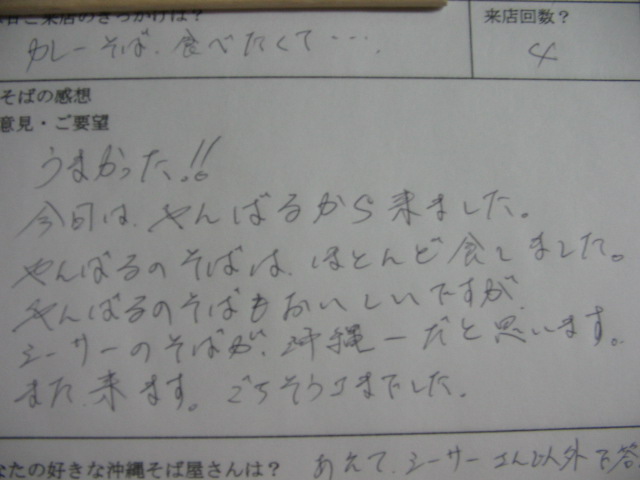 ご来店のきっかけは?
来店回数?
カレーそば、食べたくて・・・.
4
そばの感想
意見・ご要望
うまかった!!
今日は、やんばるから来ました。
やんばるのそばは、ほとんど食しました。
やんばるのそばもおいしいですが、
シーサーのそばが、沖縄一だと思います。
また、来ます。ごちそうさまでした。
なたの好きな沖縄そば屋さんは?
あえて、シーサーさん以外で答